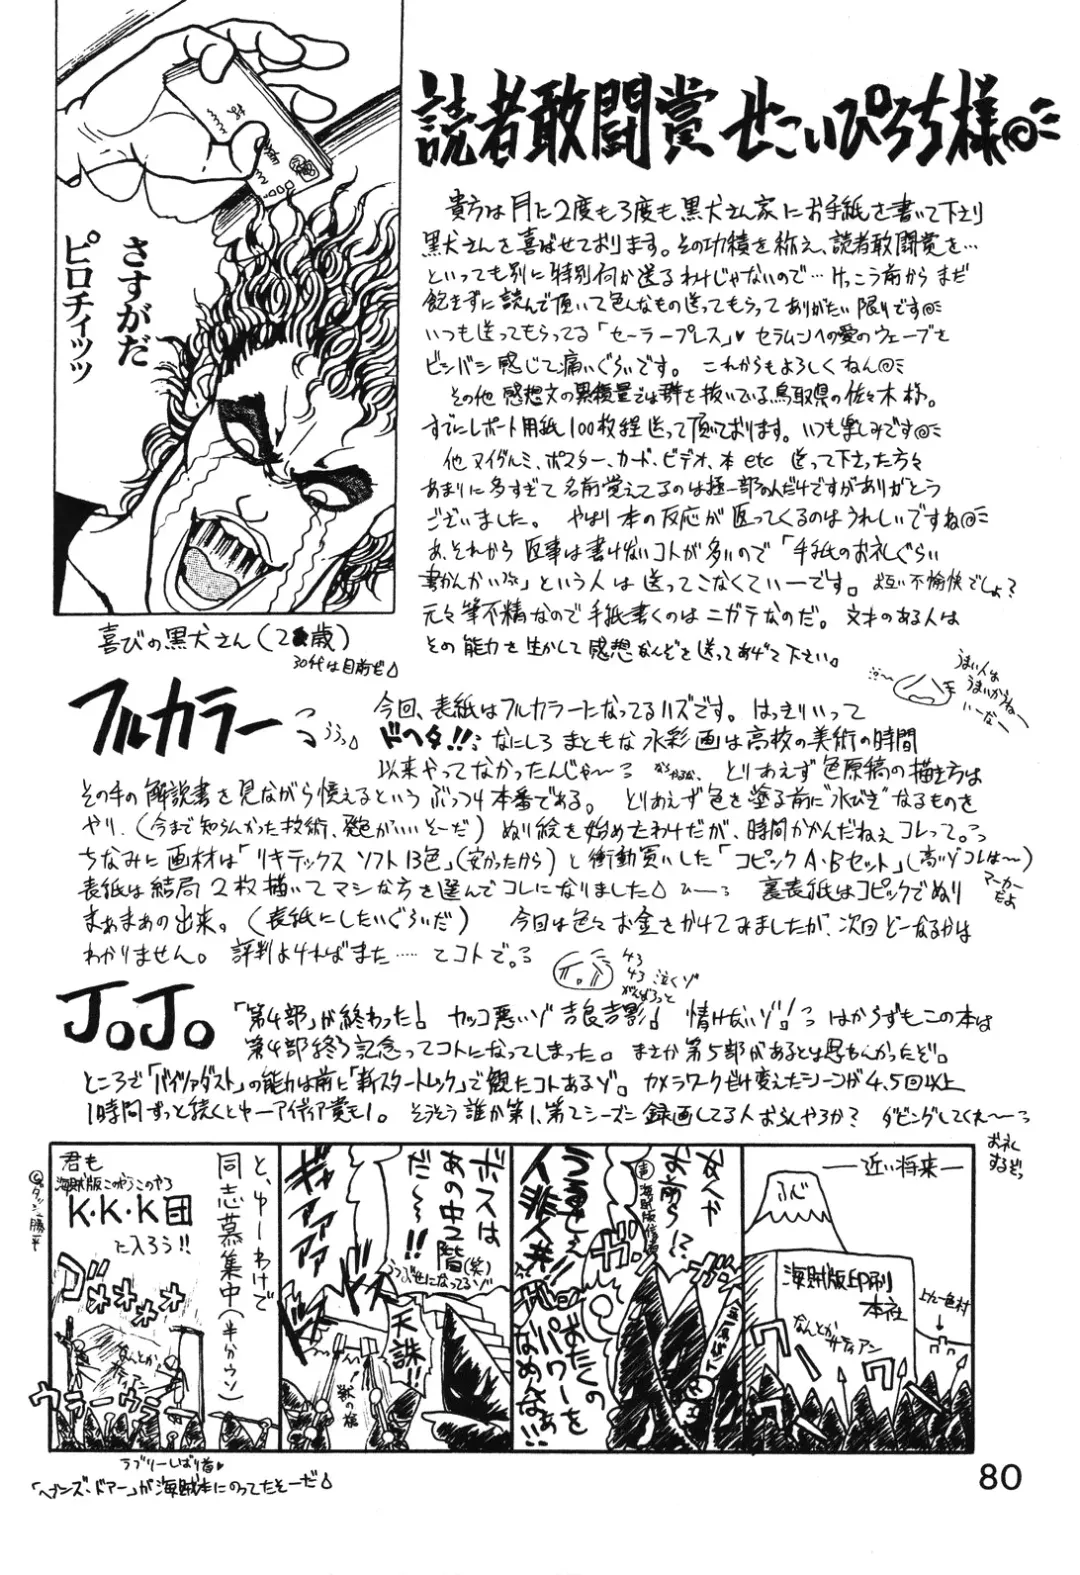 読者敢闘賞 せこいぴろち様
さすがだ
ピロチィッッ
喜びの黒犬さん(2 歳)
30代は目前だ
貴方は月に2度も3度も黒犬さん家にお手紙を書いて下さり
黒犬さんを喜ばせております。その功績を称え、読者敢闘賞を…
といっても別に特別何か送るわけじゃないので…けっこう前からまだ
飽きずに読んで頂いて色んなもの送ってもらってありがたい限りです
いつも送ってもらってる「セーラープレス」♥ セラムンへの愛のウェーブを
ビシバシ感じて痛いぐらいです。 これからもよろしくねん
その他 感想文の累積量では群を抜いている鳥取県の佐々木様。
すでにレポート用紙100枚程送って頂いております。いつも楽しみです
他ヌイグルミ、ポスター、カード、ビデオ、本etc 送って下さった方々
あまりに多すぎて名前覚えてるのは極一部のんだけですがありがとう
ございました。 やはり本の反応が返ってくるのはうれしいですね
あ、それから返事は書けないコトが多いので「手紙のお礼ぐらい
書かんかい」という人は送ってこなくていーです。お互い不愉快でしょ?
元々筆不精なので手紙書くのはニガテなのだ。文才のある人は
その能力を生かして感想なんぞを送ってあげて下さい。
うまい人は
うまいからねー
いーなー
フルカラー
うぅっ
今回、表紙はフルカラーになってるハズです。はっきりいって
ドヘタ!!なにしろまともな水彩画は高校の美術の時間
以来やってなかったんじゃ〜 とりあえず色原稿の描き方は
その手の解説書を見ながら憶えるというぶっつけ本番である。 とりあえず色を塗る前に“水びき”なるものを
やり、(今まで知らんかった技術、発色がいいそーだ)ぬり絵を始めたわけだが、時間かかんだねぇコレって。
ちなみに画材は「リキテックス ソフト13色」(安かったから)と衝動買いした「コピックA・Bセット」(高いゾコレは〜)
マーカーだよ
表紙は結局2枚描いてマシな方を選んでコレになりました ひーっ 裏表紙はコピックでぬり
まぁまぁの出来。(表紙にしたいぐらいだ) 今回は色々お金をかけてみましたが、次回どーなるかは
わかりません。評判よければまた……てコトで。
泣くゾ
がんばろっと
JoJo
「第4部」が終わった! カッコ悪いゾ吉良吉影! 情けないゾ! はからずもこの本は
第4部終了記念ってコトになってしまった。まさか第5部があるとは思もんかったぞ。
ところで「バイツァダスト」の能力は前に「新スタートレック」で観たコトあるゾ。カメラワークだけ変えたシーンが4,5回以上
1時間ずっと続くとゆーアイディア賞モノ。 そうそう誰か第1、第2シーズン録画してる人おらんやろか? ダビングしてくれ〜っ
お礼
するぞっ
―近い将来―
ふじ
海賊版印刷
本社
上九一色村
なんとか
サティアン
ワー
ワー
女人や
お前ら!?
うるせぇ
人非人共
おたくの
パワーを
なめんなぁ!!
ボスは
あの中2階(笑)
だ〜!!
うつぶせになってるゾ
天誅!!
ギャアアアア
獣の槍
と、ゆーわけで
同志募集中(半分ウソ)
君も
海賊版このやろこのやろ
K・K・K団
に入ろう!!
ゴォォォォ
なんとか
サティアン
ウラーウラー
©ダッシュ勝平
ラブリーしばり首♥
「ヘブンズ・ドアー」が海賊本にのってたそーだ
80